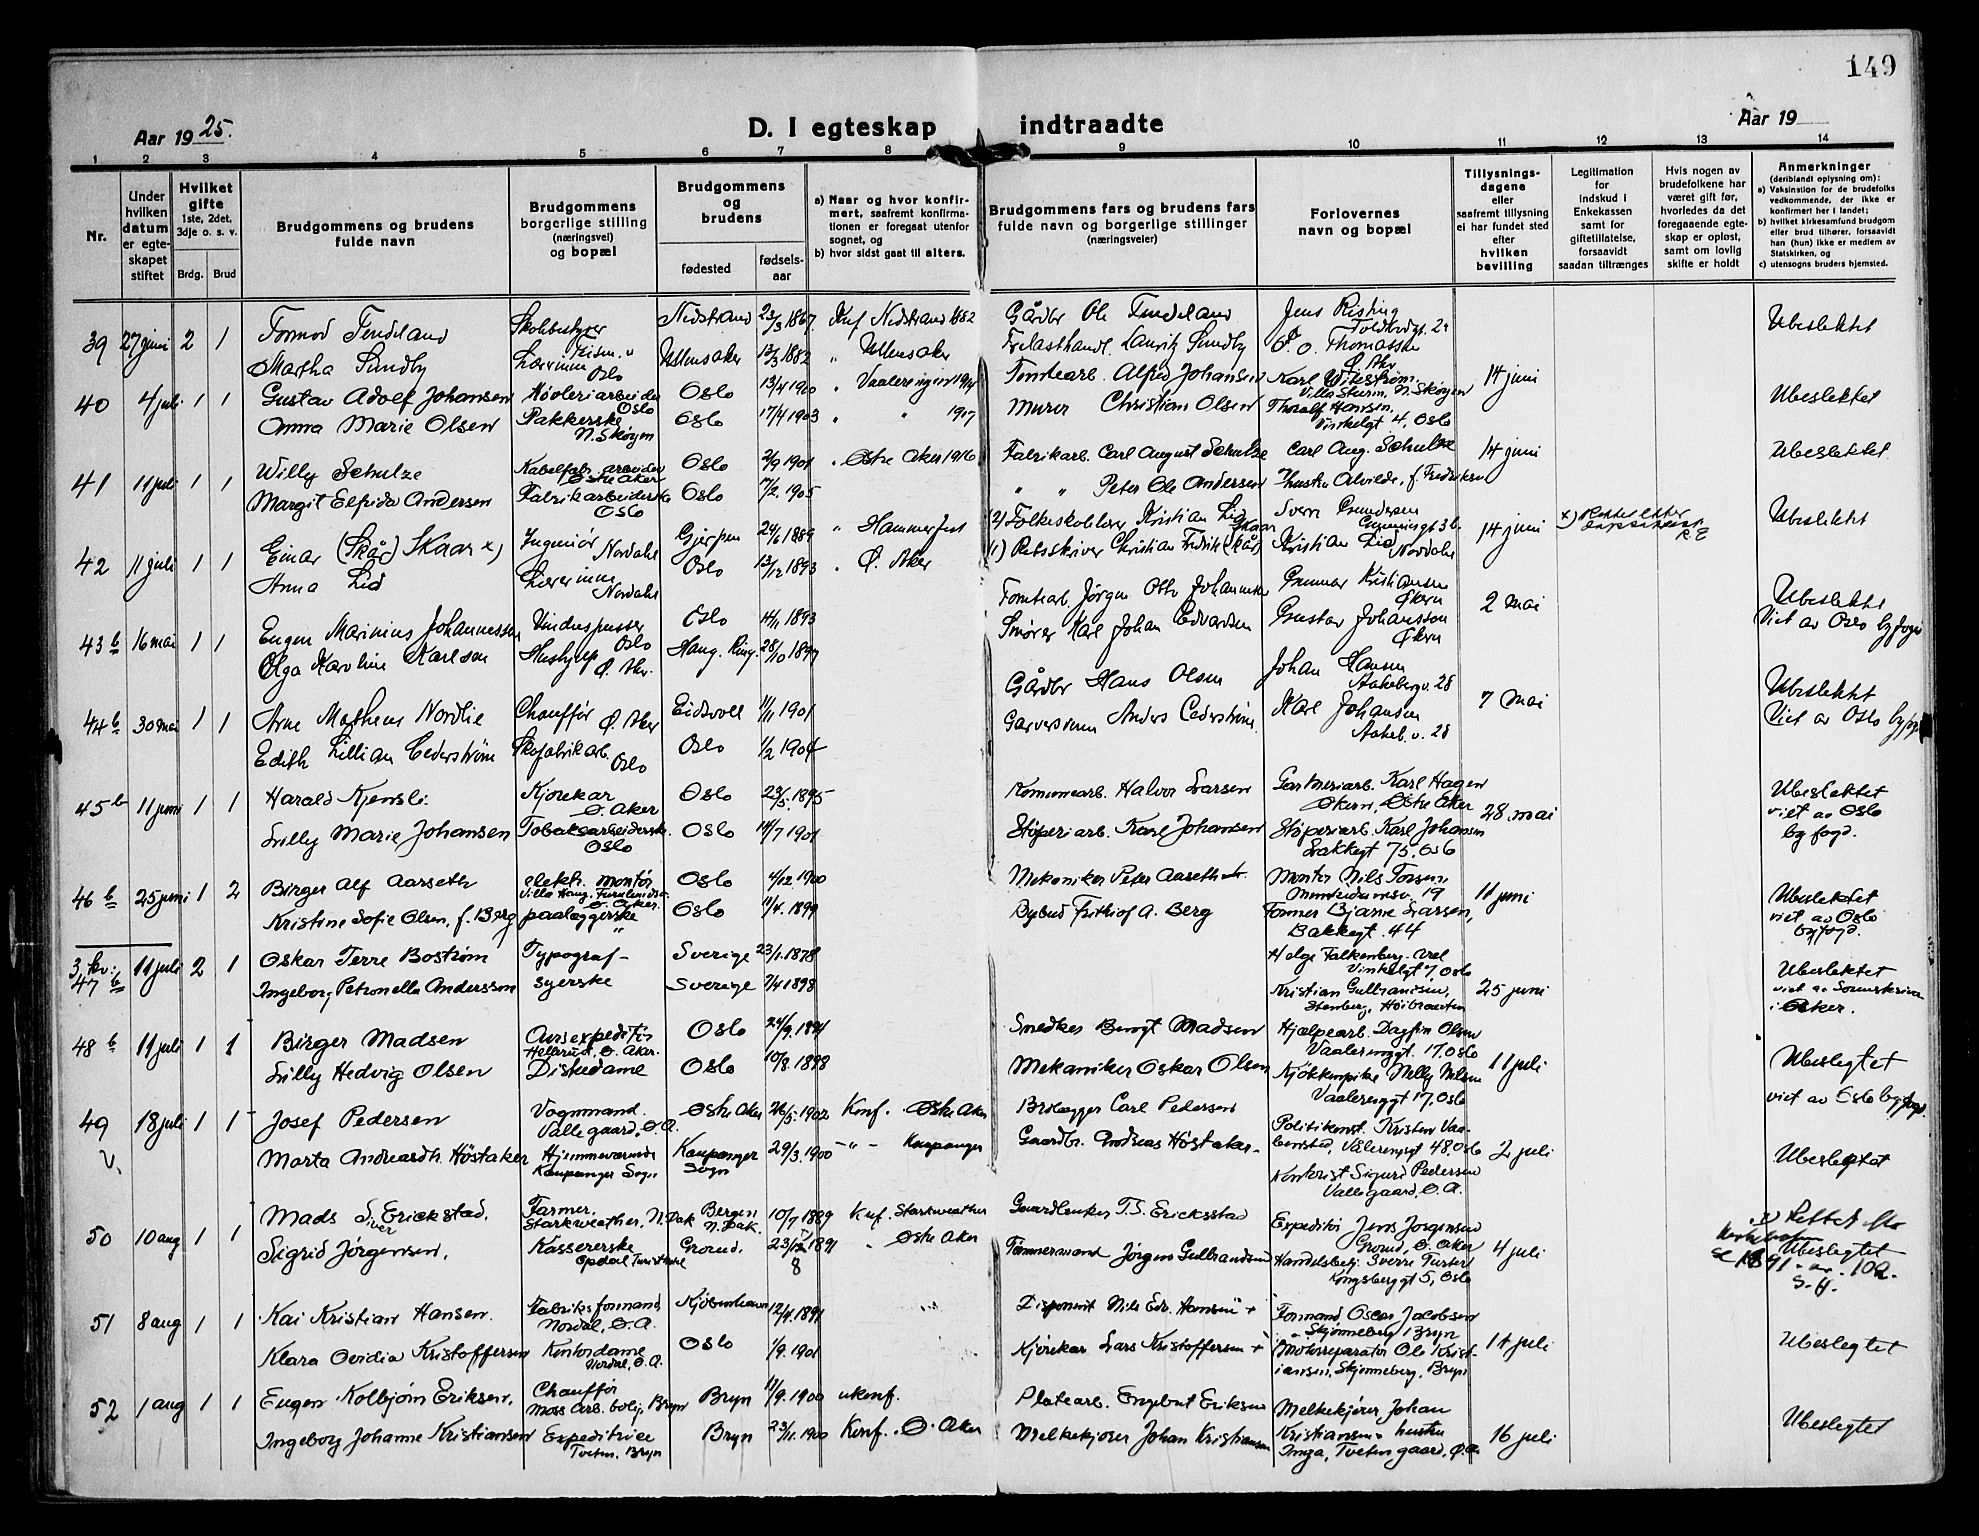 149
Aar 1925.
D. I egteskap indtraadte
Aar 19
1 2 3 4 5 6 7 8 9 10 11 12 13 14
Nr.
Under hvilken datum er egteskapet stiftet
Hvilket gifte
1ste, 2det, 3dje o. s. v.
Brdg. Brud
Brudgommens og brudens fulde navn
Brudgommens borgerlige stilling (næringsvei) og bopæl
Brudgommens og brudens
fødested
fødselsaar
a) Naar og hvor konfirmert, saafremt konfirmationen er foregaat utenfor sognet, og
b) hvor sidst gaat til alters.
Brudgommens fars og brudens fars fulde navn og borgerlige stillinger (næringsveier)
Forlovernes navn og bopæl
Tillysningsdagene eller saafremt tillysning ei har fundet sted efter hvilken bevilling
Legitimation for indskud i Enkekassen samt for giftetillatelse, forsaavidt saadan tiltrænges
Hvis nogen av brudefolkene har været gift før, hvorledes da det foregaaende egteskap er opløst, samt om lovlig skifte er holdt
Anmerkninger (deriblandt oplysning om):
a) Vaksinstion for de brudefolks vedkommende, der ikke er konfirmert her i landet;
b) hvilket kirkesamfund brudgom eller brud tilhører, forsaavidt han (hun) ikke er medlem av Statskirken, og
c) utensogns bruders hjemsted.
39 27 juni 2 1 Tormod Tendeland Nedstrand 23/3 1867. Knf Nedstrand 1882 Gårdbr Ole Tendeland Jens Risting Toldbodgt. 2 Ubeslektet
Martha Sundby Lærerinne Oslo Ullensaker 13/3 1882 " Ullensaker Trelasthandl. Lauritz Sundby O. Thomassen Ø. Aker
40 4 juli 1 1 Gustav Adolf Johansen Høvleriarbeider Oslo Oslo 13/4 1900 " Vaalerengen 1914 Tomtearb. Alfred Johansen Karl Wikstrøm Villa Sturm, N. Skøyen 14 juni Ubeslektet
Anna Marie Olsen Pakkerske N. Skøyen Oslo 17/4 1903 " " 1917 Murer Christian Olsen Thoralf Hansen, Vinkelgt. 4, Oslo
41 11 juli 1 1 Willy Schulze Kabelfabr. arbeider Østre Aker Oslo 2/9 1901 " Østre Aker 1916 Fabrikarb. Carl August Schulze Carl Aug. Schulze 14 juni Ubeslektet
Margit Elfrida Andersen Fabrikarbeiderske Oslo Oslo 17/2 1905 " " Peter Ole Andersen Hustru Alvilde, f. Fredriksen
42 11 juli 1 1 Einar (Skår) Skaar x) Ingeniør Nordahl Gjerpen 24/6 1889 " Hammerfest (2) Folkeskolelærer Kristian Lid Sverre Gundersen 14 juni Ubeslektet
Anna Lid Lærerinne Nordahl Oslo 13/12 1893 " Ø. Aker (1) Retsskriver Christian Fredrik (Skår) Skaar Kristian Lid Nordahl
43 b 16 mai 1 1 Eugen Marinius Johannessen Vinduspusser Oslo Oslo 14/1 1893 Tomtearb Jørgen Otto Johannessen Gunnar Kristiansen Økern 2 mai Ubeslektet
Olga Karoline Karlsen Hushjelp Ø. Aker. Haug. Ring. 28/10 1897 Smører Karl Johan Edvardsen Gustav Johansson Økern Viet av Oslo byfogd
44 b 30 mai 1 1 Arne Matheus Nordlie Chauffør Ø. Aker Eidsvoll 11/11 1901 Gårdbr Hans Olsen Johan Hansen Aakebergv. 28 7 mai Ubeslektet
Edith Lillian Cederstrøm Skofabrikarb. Oslo Oslo 1/2 1904 Garversvenn Anders Cederstrøm Karl Johansen Aakeb. v. 28 Viet av Oslo byfogd
45 b 11 juni 1 1 Harald Kjensli Kjørekar Ø. Aker Oslo 23/5 1895 Kommunearb. Halvor Larsen Gartneriarb. Karl Hagen Økern, Østre Aker 28. mai Ubeslektet
Lilly Marie Johansen Tobaksarbeiderske. Oslo Oslo 14/7 1901 Støperiarb. Karl Johansen Støperiarb. Karl Johansen Lakkegt 75, Oslo viet av Oslo byfogd.
46 b 25 juni 1 2 Birger Alf Aarseth elektr. montør Villa Haug, Furulundsv. Ø. Aker. Oslo 4/12 1900 Mekaniker Peter Aarseth Montør Nils Torsen 19 11 juni Ubeslektet
Kristine Sofie Olsen, f. Berg paalæggerske " Oslo 11/4. 1899 Rybud Frithiof A. Berg Former Bjarne Larsen, Bakkegt. 44 viet av Oslo byfogd.
3. kv: 47 b 11 juli 2 1 Oskar Terre Bostrøm Typograf - Sverige 23/1. 1878 Helge Falkenberg Vinkelgt 7, Oslo Ubeslektet
Ingeborg Petronella Andersson syerske Sverige 7/4 1898 Kristian Gulbrandsen, Stenberg, Høibraaten 25 juni viet av Sorenskriver i Aker.
48 b 11 juli 1 1 Birger Madsen Avisexpeditør Hellerud, Ø. Aker. Oslo 24/9. 1891 Snedker Bengt Madsen Hjælpearb. Dagfin Olsen Vaalerenggt. 17, Oslo Ubeslegtet
Lilly Hedvig Olsen Diskedame Oslo 10/8. 1898 Mekaniker Oskar Olsen Kjøkkenpike Nelly Nilsen Vaalerenggt 17, Oslo 11 juli viet av Oslo byfogd.
49 v. 18 juli 1 1 Josef Pedersen Vognmand. Valle gaard, Ø. A. Østre Aker 26/5. 1902 Konf. Østre Aker Brolægger Carl Pedersen Politikonst. Kristen Vaabensted, Vålerenggt 48, Oslo 2 juli
Marta Andreasdtr. Høstaker Hjemmeværende Kaupanger Sogn Kaupanger Sogn 29/3. 1900 - " - Kaupanger Gaardbr. Andreas Høstaker - Kontorist Sigurd Pedersen Valle gaard, Ø. A. Ubeslegtet
50 10 aug 1 1 Mads Siver Erickstad. Farmer. Starkweather, N. Dak Bergen N. Dak. 10/7 1889 Knf. Starkweather Gaardbruker T. S. Ericksstad Expeditør Jens Jørgensen Grorud, Ø. Aker 4 juli
Sigrid Jørgensen. Kassererske Opdal Turisthotel Grorud. 23/12 1891 8 " Østre Aker Tømmermand Jørgen Gulbrandsen Handelsbetj. Sverre Kongsberggt 5, Oslo Ubeslegtet 1891 S. H.
51 8 aug 1 1 Kai Kristian Hansen. Fabriksformand Nordal, Ø. A. Kjøbenhavn 12/4. 1891 Disponent Nils Edv. Hansen + Formand Oscar Jacobsen Skjønneberg, Bryn 14 juli Ubeslegtet
Klara Ovidia Kristoffersen Kontordame Nordal, Ø. A. Oslo 1/9. 1901 Kjørekar Lars Kristoffersen + Motorreparatør Ole Kristiansen, Skjønneberg, Bryn
52 1 aug 1 1 Eugen Kolbjørn Eriksen. Chauffør Moss Arb. bolig, Bryn Bryn 11/9. 1900 ukonf. Platearb. Engebret Eriksen Melkekjører Johan 16 juli Ubeslegtet
Ingeborg Johanne Kristiansen Expeditrice Tveten, Bryn Bryn 23/11. 1900 Konf. Ø. Aker Melkekjører Johan Kristiansen Kristiansen + hustru Inga, Tveten gaard, Ø. A.